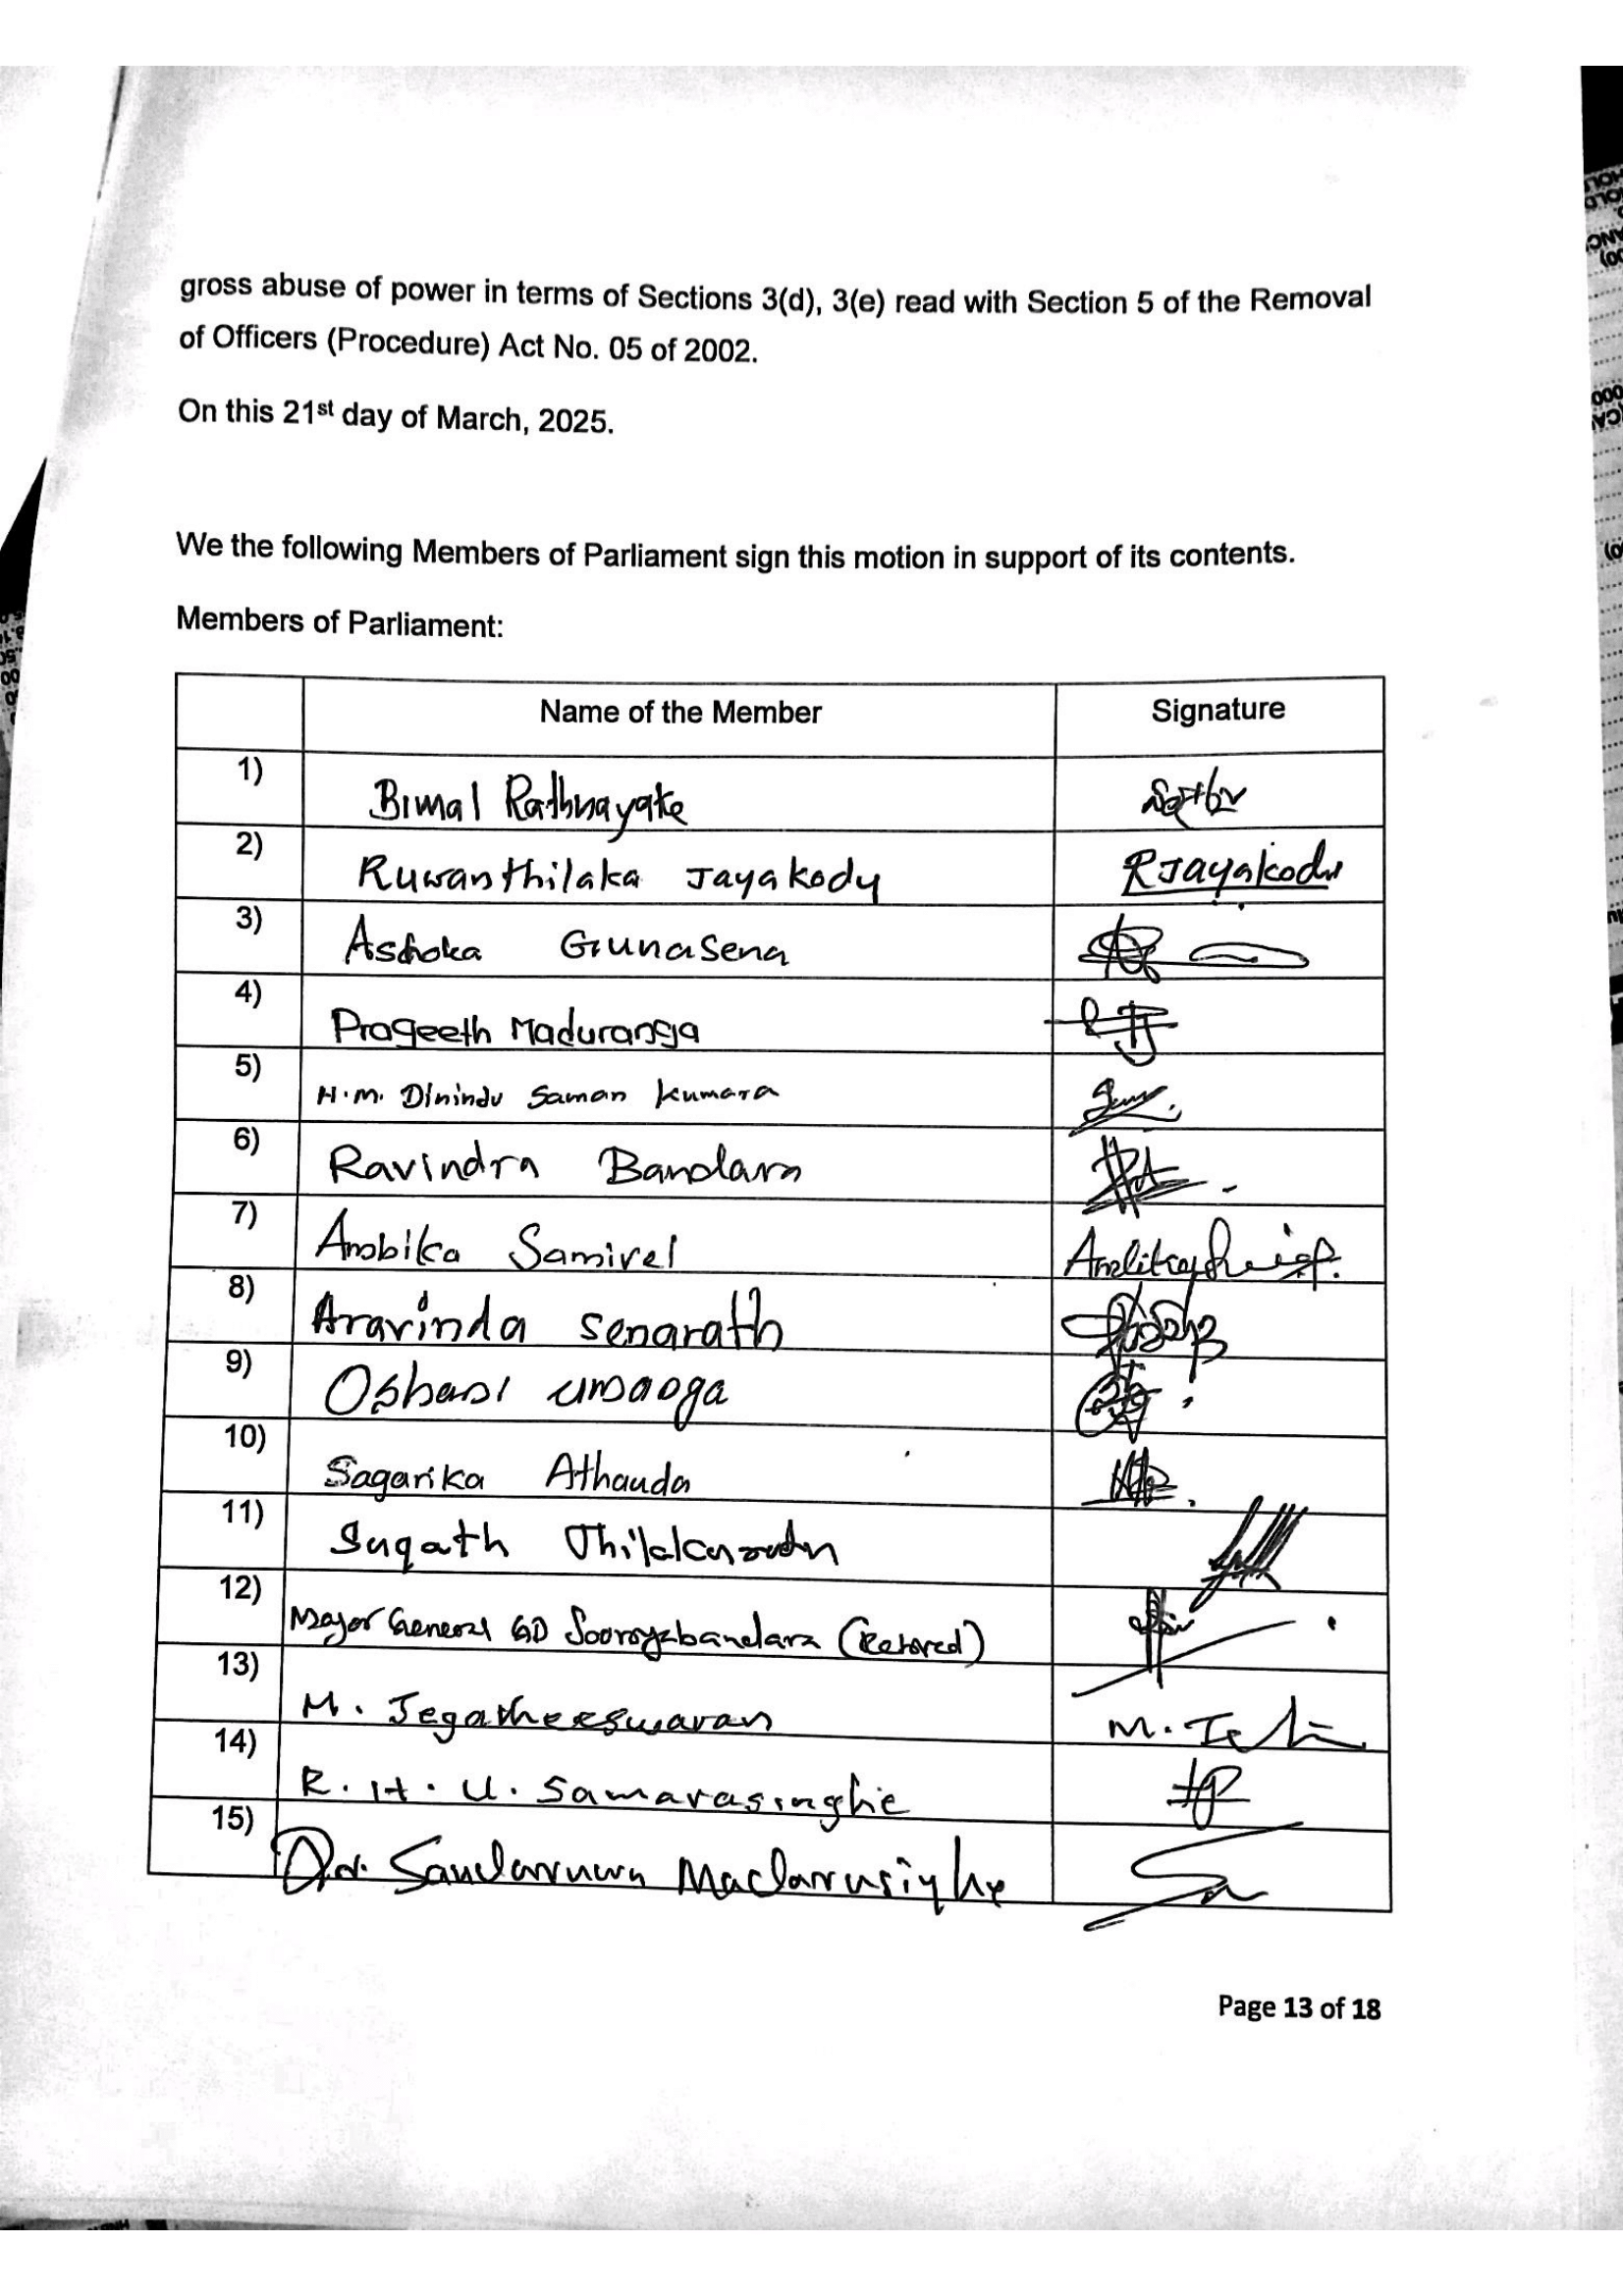 gross abuse of power in terms of Sections 3(d), 3(e) read with Section 5 of the Removal
of Officers (Procedure) Act No. 05 of 2002.
On this 21st day of March, 2025.
We the following Members of Parliament sign this motion in support of its contents.
Members of Parliament:
Name of the Member Signature
1) Bimal Rathnayake
2) Ruwanthilaka Jayakody RJayakody
3) Ashoka Gunasena
4) Prageeth Maduranga
5) H.M. Dinindu Saman Kumara
6) Ravindra Bandara
7) Ambika Samivel
8) Aravinda Senarath
9) Oshani Umanga
10) Sagarika Athauda
11) Sugath
12) Major General GD Sooriyabandara (Retired)
13) M. Jegatheeswaran
14) R.H.U. Samarasinghe
15) Dr.
Page 13 of 18